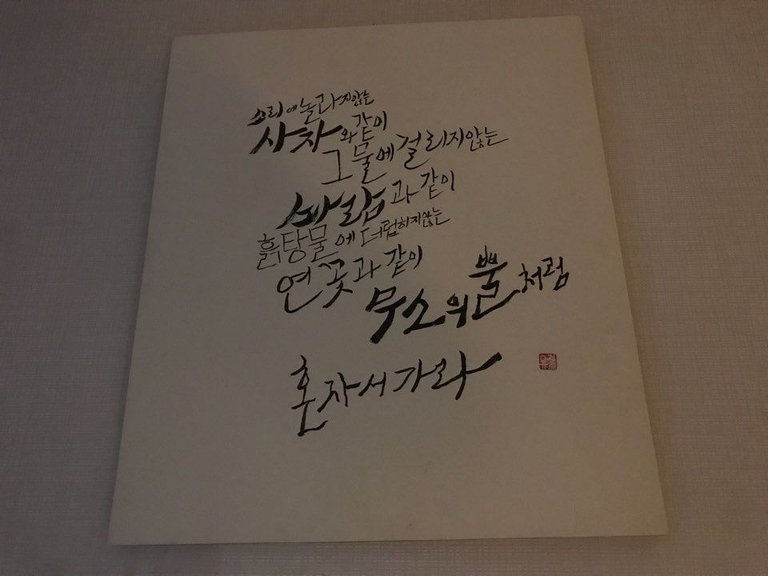 소리에놀라지않는
사자와같이
그물에걸리지않는
바람과같이
흙탕물에더럽히지않는
연꽃과같이
무소의뿔처럼
혼자서가라